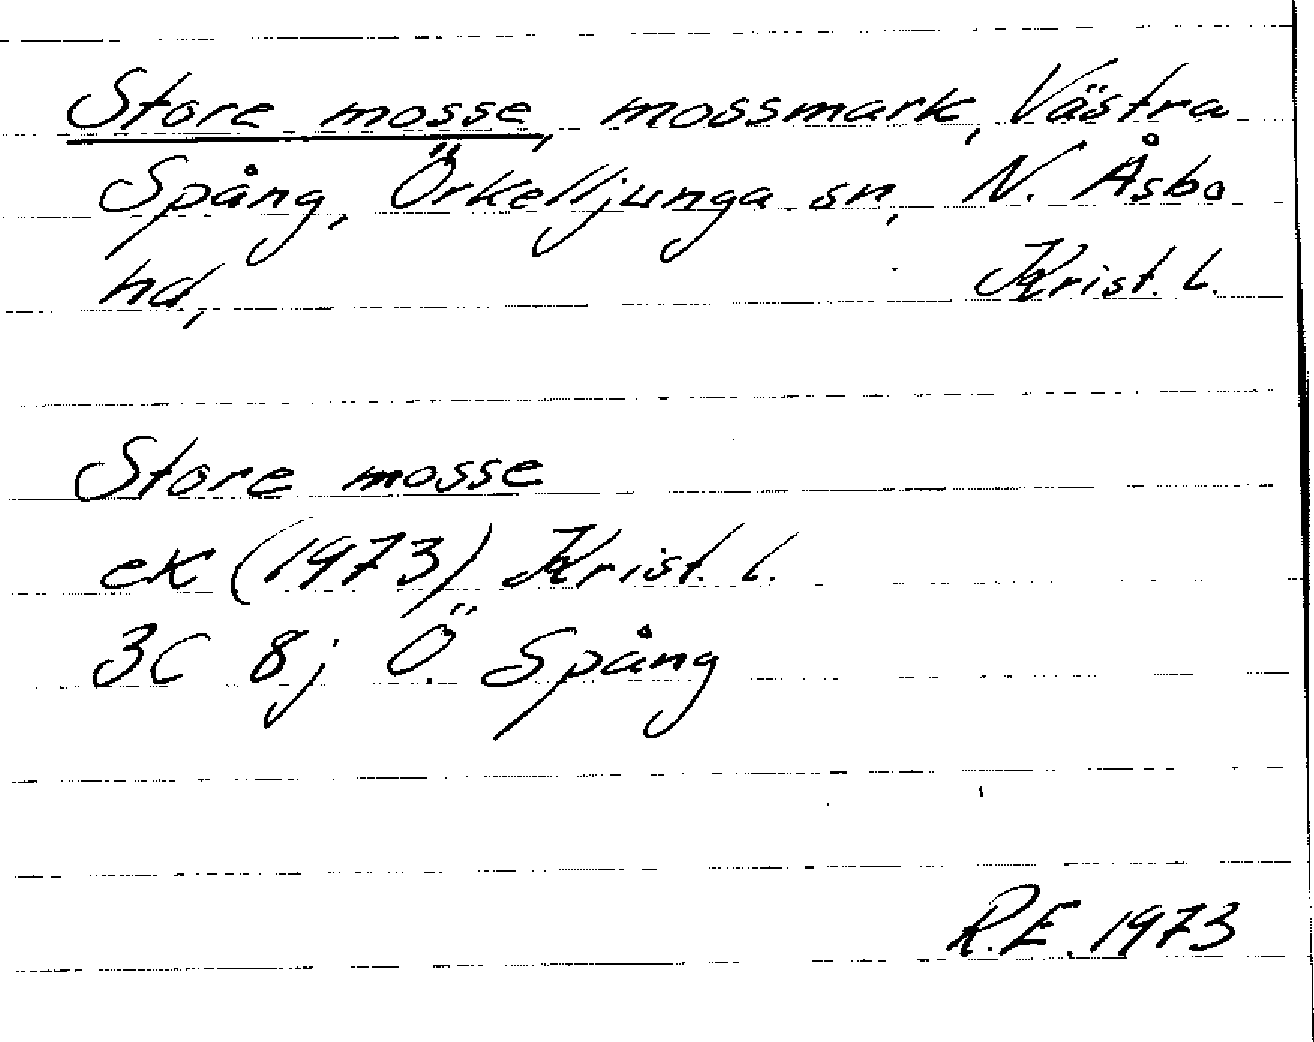 Store mosse, mossmark, Västra
Spång, Örkelljunga sn, N. Åsbo
hd, Krist. l.
Store mosse
ek (1973) Krist. l.
3C 8j Ö. Spång
R.E. 1973